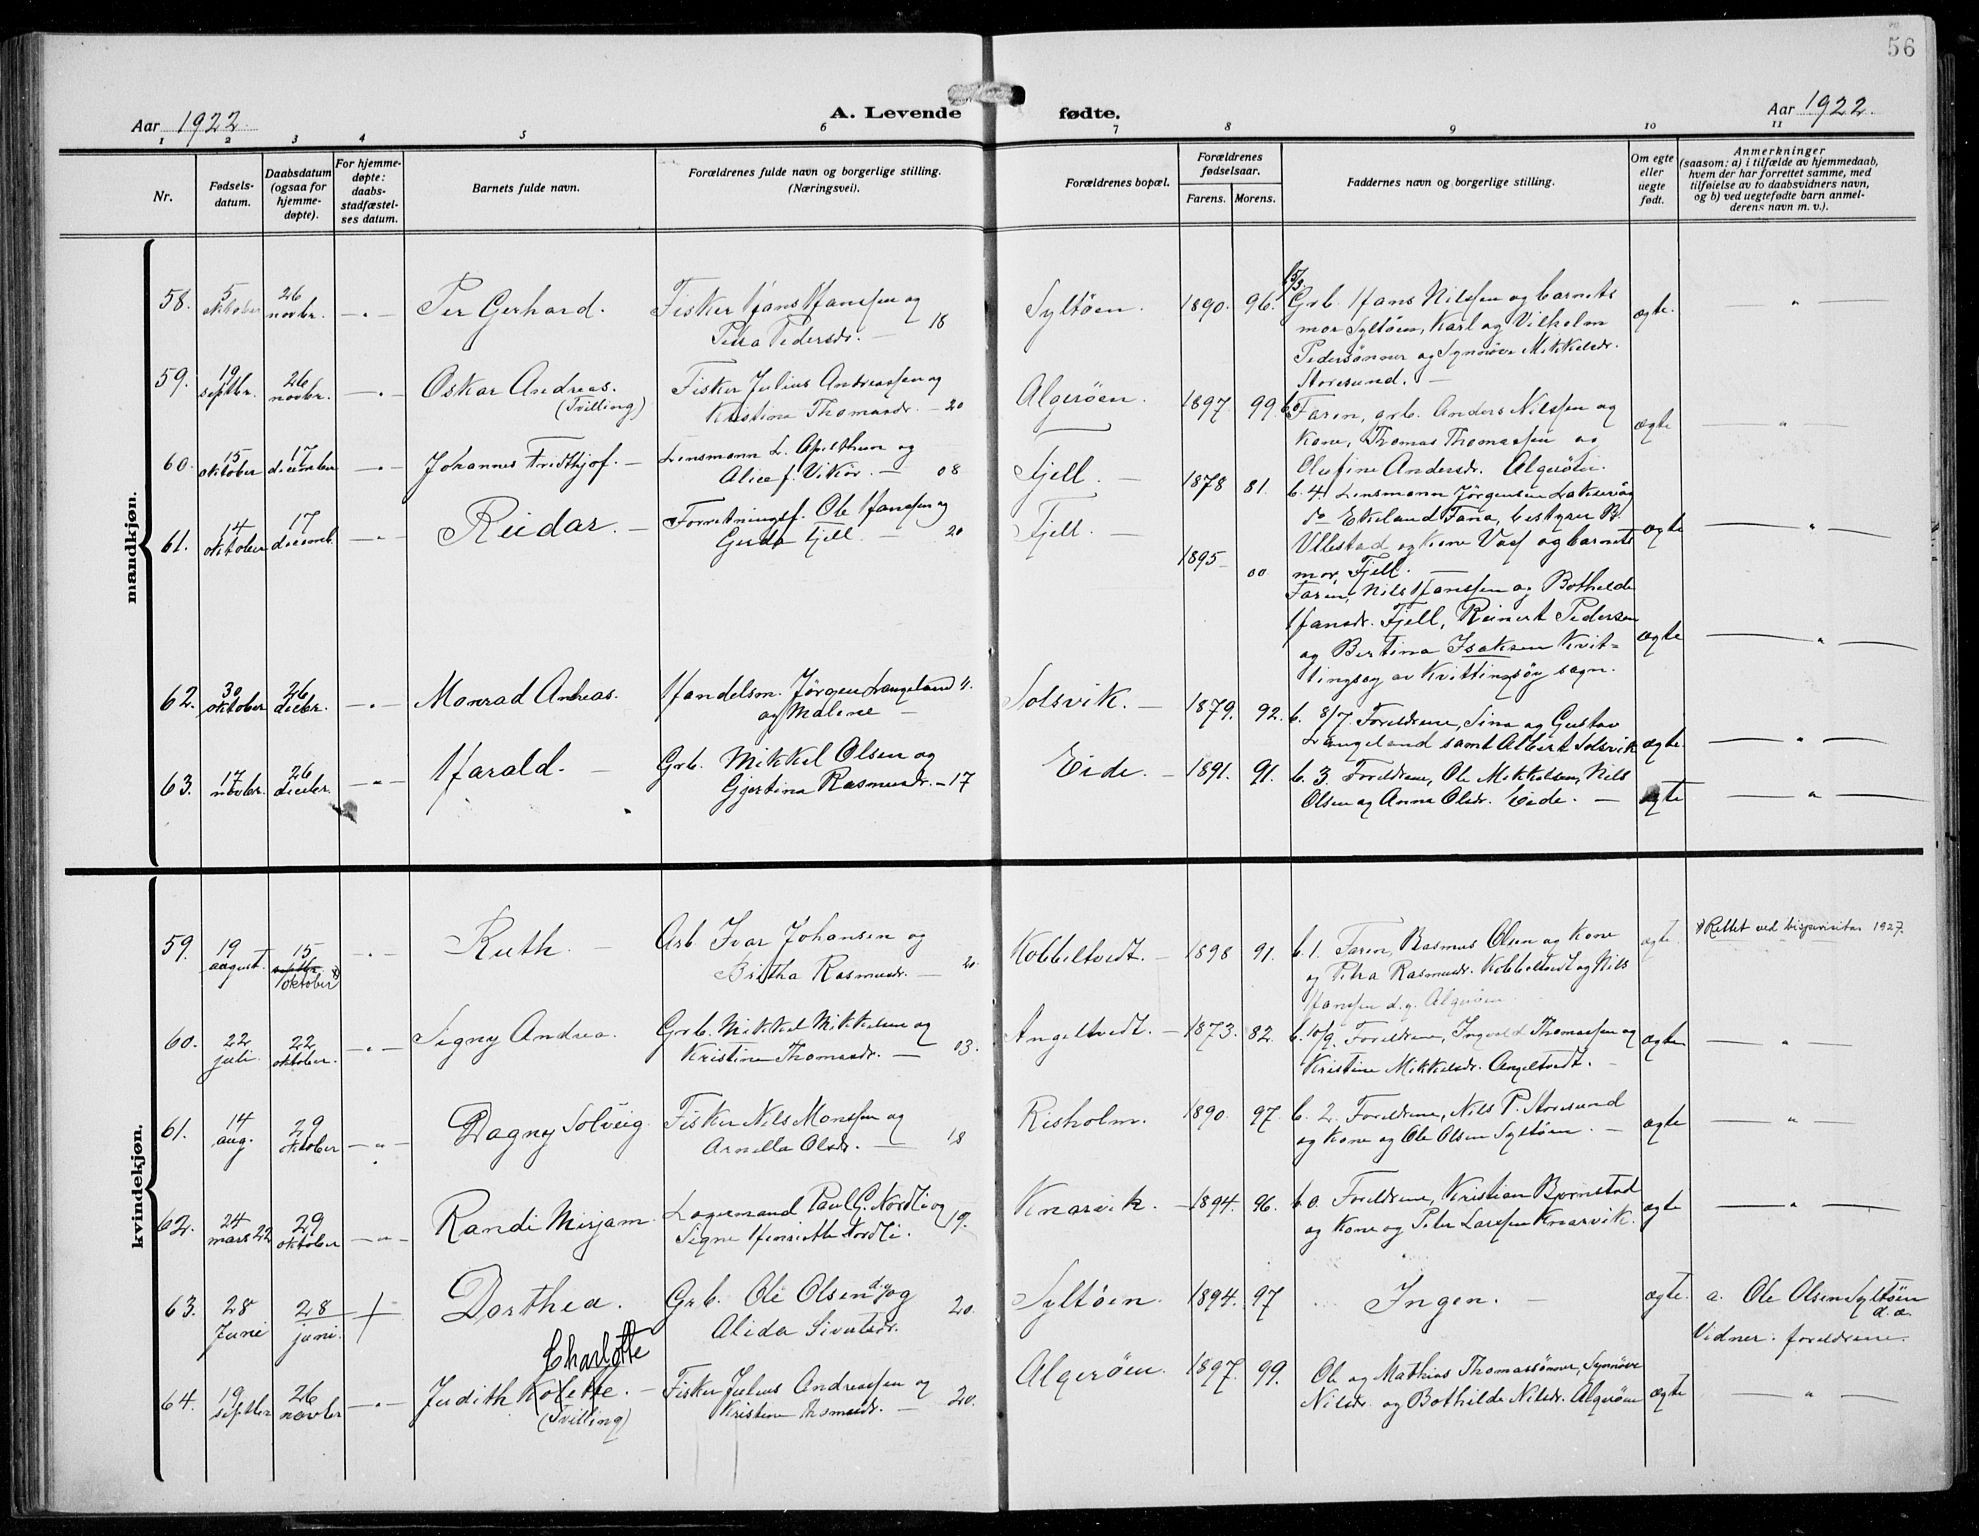 56
Aar 1922.
A. Levende fødte.
Aar 1922.
1 2 3 4 5 6 7 8 9 10 11
Nr.
Fødsels-
datum.
Daabsdatum
(ogsaa for
hjemme-
døpte).
For hjemme-
døpte:
daabs-
stadfæstel-
ses datum.
Barnets fulde navn.
Forældrenes fulde navn og borgerlige stilling.
(Næringsvei).
Forældrenes bopæl.
Forældrenes
fødselsaar.
Farens. Morens.
Faddernes navn og borgerlige stilling.
Om egte
eller
uegte
født.
Anmerkninger
(saasom: a) i tilfælde av hjemmedaab,
hvem der har forrettet samme, med
tilføielse av to daabsvidners navn,
og b) ved uegtefødte barn anmel-
derens navn m. v.).
mandkjøn.
58. 5 oktober 26 novbr. Per Gerhard. Fisker Hans Hanssen og
Petra Pedersdr. — 18 Syltöen. 1890. 96. Grb. Hans Nilssen og barnets
mor Syltöen, Karl og Vilhelm
Pedersönner og Synnöve Mikkelsdr.
Storesund. — ægte.
59. 19 septbr. 26 novbr. Oskar Andreas.
(Tvilling) Fisker Julius Andreassen og
Kristina Thomasdr. — 20 Algeröen. 1897. 99. Faren, arb. Anders Nilssen og
kone, Thomas Thomassen og
Olufine Andersdr. Algeröen. ægte
60. 15 oktober 17 december Johannes Fridthjof. — Lensmann L. Apelthun og
Alice f. Vikör. — 08 Fjell. — 1878 81. b. 4. Lensmann Jörgensen Laksevåg
do Ekeland Fana, bestyrer B.
Ullestad og kone Voss og barnets
mor, Fjell. — ægte
61. 14 oktober 17 decemb. Reidar. — Forretningsf. Ole Hanssen og
Gerda Fjell. — 20 Fjell. — 1895 00 Faren, Nils Hanssen og Bothilde
Hansdr. Fjell, Reinert Pedersen
og Bertina Isaksen Kvit-
tingsøy av Kvittingsøy sogn. ægte
62. 30 oktober 26 decbr. Monrad Andreas. Handelsm. Jörgen Langeland
og Malene — Solsvik. — 1879. 92. b. 8/7. Foreldrene, Sina og Gustav
Langeland samt Albert Solsvik ægte
63. 17 novbr. 26 decbr. Harald. — Grb. Mikkel Olsen og
Gjertina Rasmusdr. — 17 Eide. — 1891. 91. b. 3. Foreldrene, Ole Mikkelsen, Nils
Olsen og Anna Olsdr. Eide. — ægte
kvindekjøn.
59. 19 august. 15 oktober Ruth. — Arb. Ivar Johansen og
Britha Rasmusdr. — 20 Kobbeltvedt. — 1898 91. b. 1. Faren, Rasmus Olsen og kone
og Petra Rasmusdr. Kobbeltvedt og Nils
Hanssen d.y. Algeröen. ægte. Rettet ved bispevisitas 1927.
60. 22 juli. 22 oktober. Signy Andrea. Grb. Mikkel Mikkelsen og
Kristine Thomasdr. — 03. Angeltvedt. — 1873. 82. b. 10/9. Foreldrene, Ingvald Thomassen og
Kristine Mikkelsdr. Angeltvedt. — ægte
61. 14 aug. 29 oktober Dagny Solveig. Fisker Nils Monssen og
Arnella Olsdr. — 18 Risholm. — 1890. 97 b. 2. Foreldrene, Nils P. Storesund
og kone og Ole Olsen Syltöen. — ægte
62. 24 mars 22 29 oktober Randi Mirjam. Lagermand Paul G. Nordli og
Signe Henriette Nordli. 19. Knarvik. — 1894. 96. b. 0. Foreldrene, Kristian Bjørnstad
og kone og Peter Larssen Knarvik. ægte
63. 28 Juni 28 juni. Dorthea. Grb. Ole Olsen d.y. og
Alida Sivertsdr. 20. Syltöen. 1894. 97 Ingen. — ægte. a. Ole Olsen Syltöen
d. æ.
Vidner: foreldrene.
Charlotte
64. 19 septbr 26 novbr Judith Kolette. —
(Tvilling) Fisker Julius Andreassen og
Kristine Thomasdr. — 20. Algeröen. 1897. 99. Ole og Mathias Thomassönner, Synnöve
Nilsdr. og Bothilde Nilsdr. Algeröen ægte